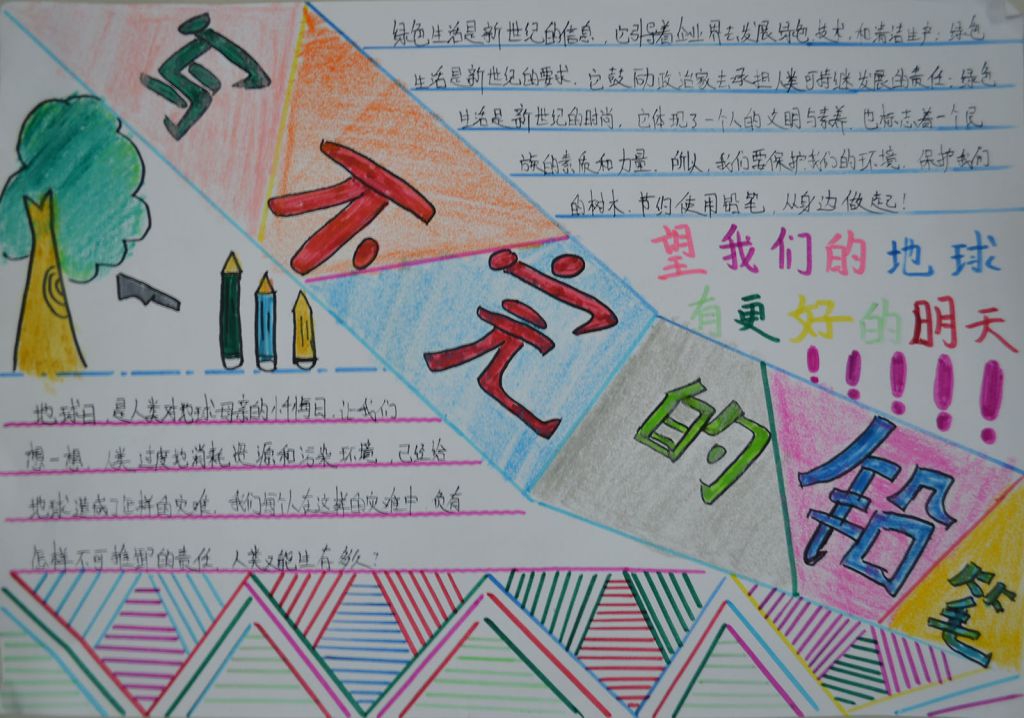 写不完的铅笔
绿色生活是新世纪的信息，它引导着企业界去发展绿色技术，和清洁生产；绿色
生活是新世纪的要求，它鼓励政治家去承担人类可持继发展的责任；绿色
生活是新世纪的时尚，它体现了一个人的文明与素养，也标志着一个民
族的素质和力量，所以，我们要保护我们的环境，保护我们
的树木，节约使用铅笔，从身边做起！
望我们的地球
有更好的明天
！！！！！
地球日，是人类对地球母亲的忏悔日，让我们
想一想，人类过度地消耗资源和污染环境，已经给
地球造成了怎样的灾难，我们每个人在这样的灾难中负有
怎样不可推卸的责任，人类又能生存多久？